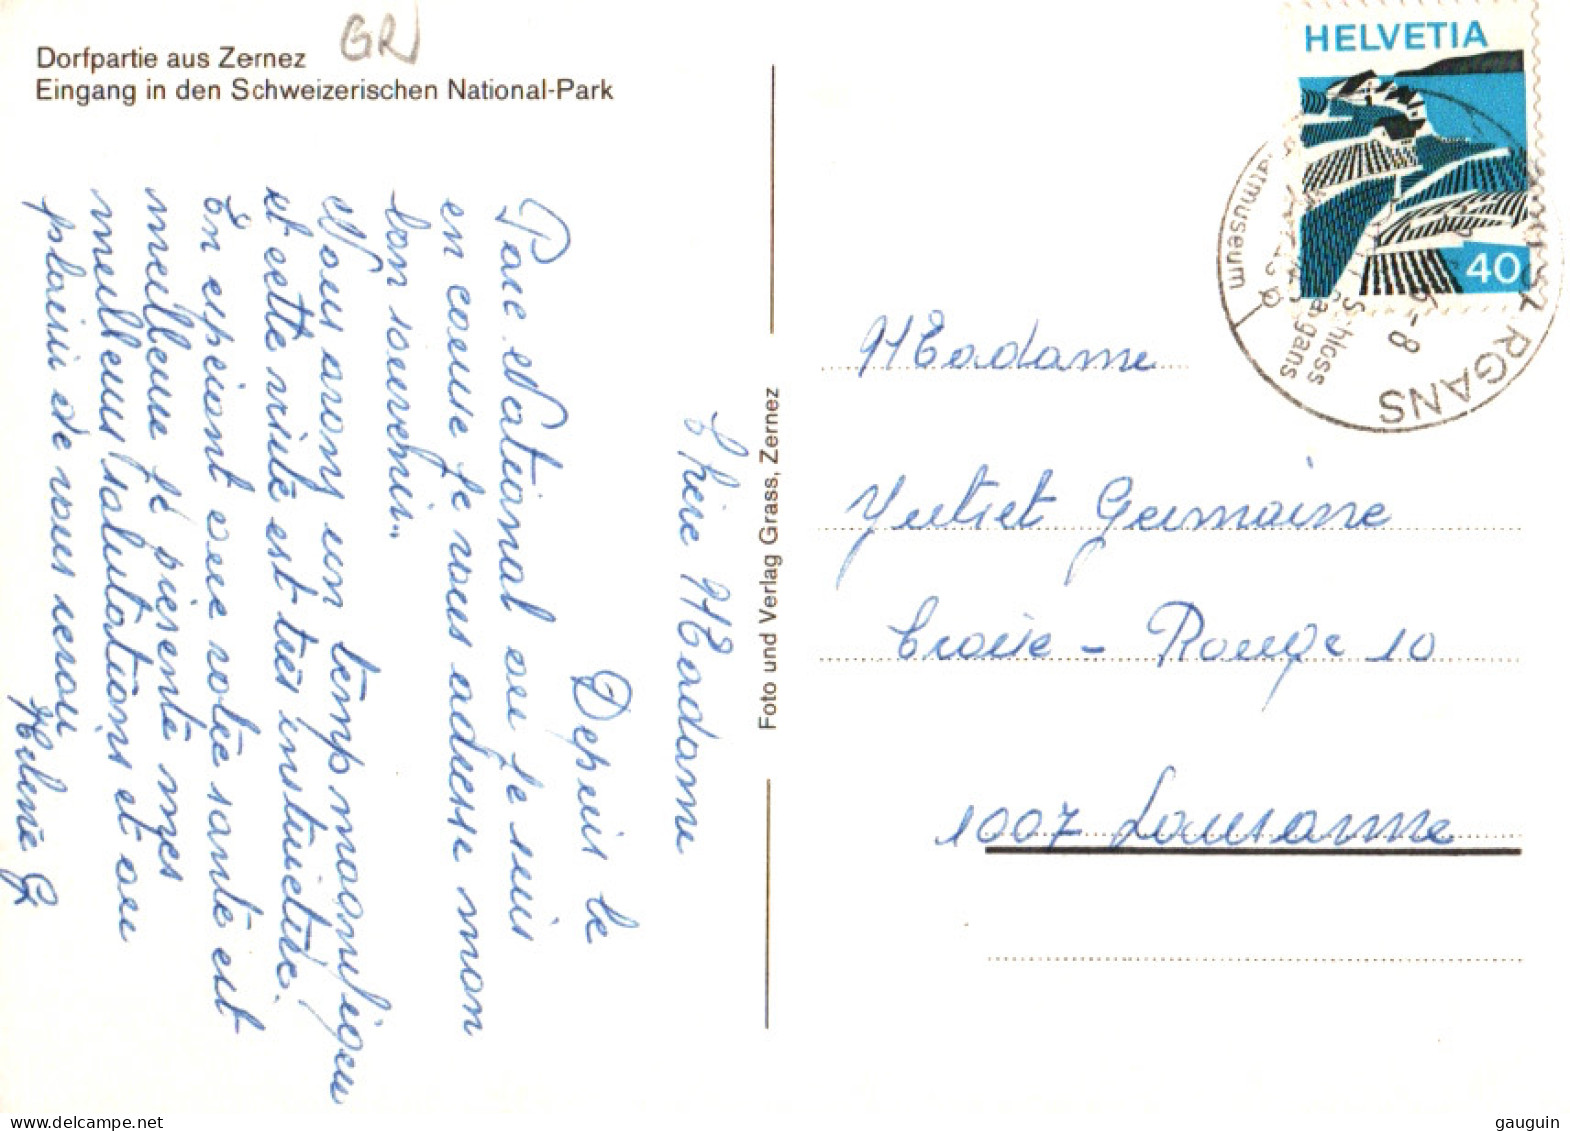 GR
Dorfpartie aus Zernez
Eingang in den Schweizerischen National-Park
Chère Madame
Depuis le
Parc National ou je suis
en course je vous adresse mon
bon souvenir..
Nous avons un temp magnifique
et cette visite est très instuctive.
En espérant que votre santé est
meilleure je présente mes
meilleurs salutations et au
plaisir de vous revoir
Hélène G.
Foto und Verlag Grass, Zernez
HELVETIA
40
SARGANS
Schloss
Sargans
-8
museum
Madame
Germaine
Croix-Rouge 10
1007 Lausanne
gauguin